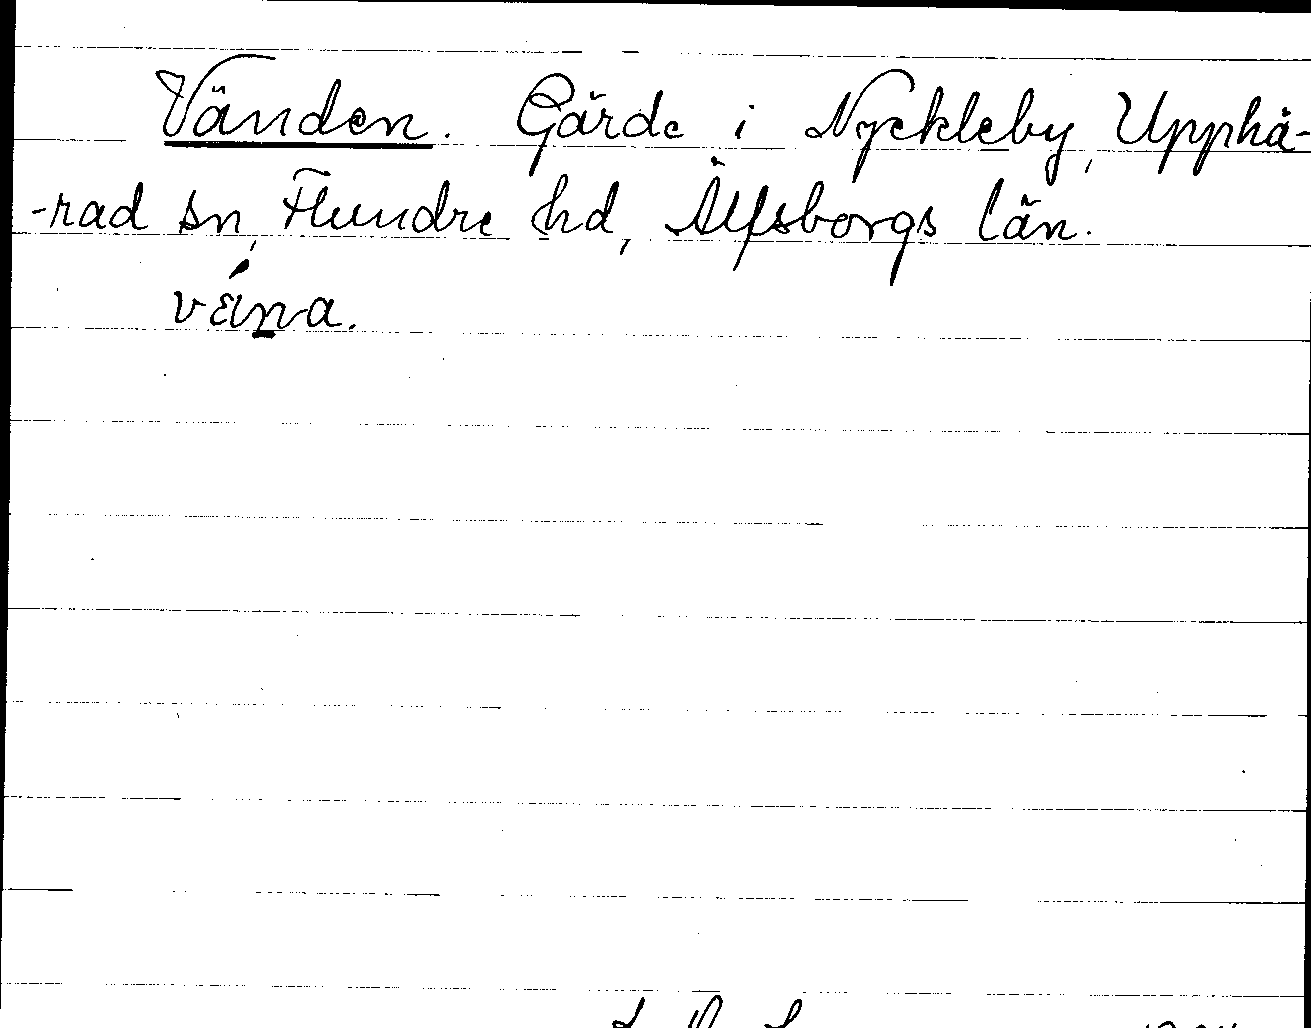 Vänden. Gärde i Nyckleby, Upphä-
-rad sn, Flundre hd, Älfsborgs län.